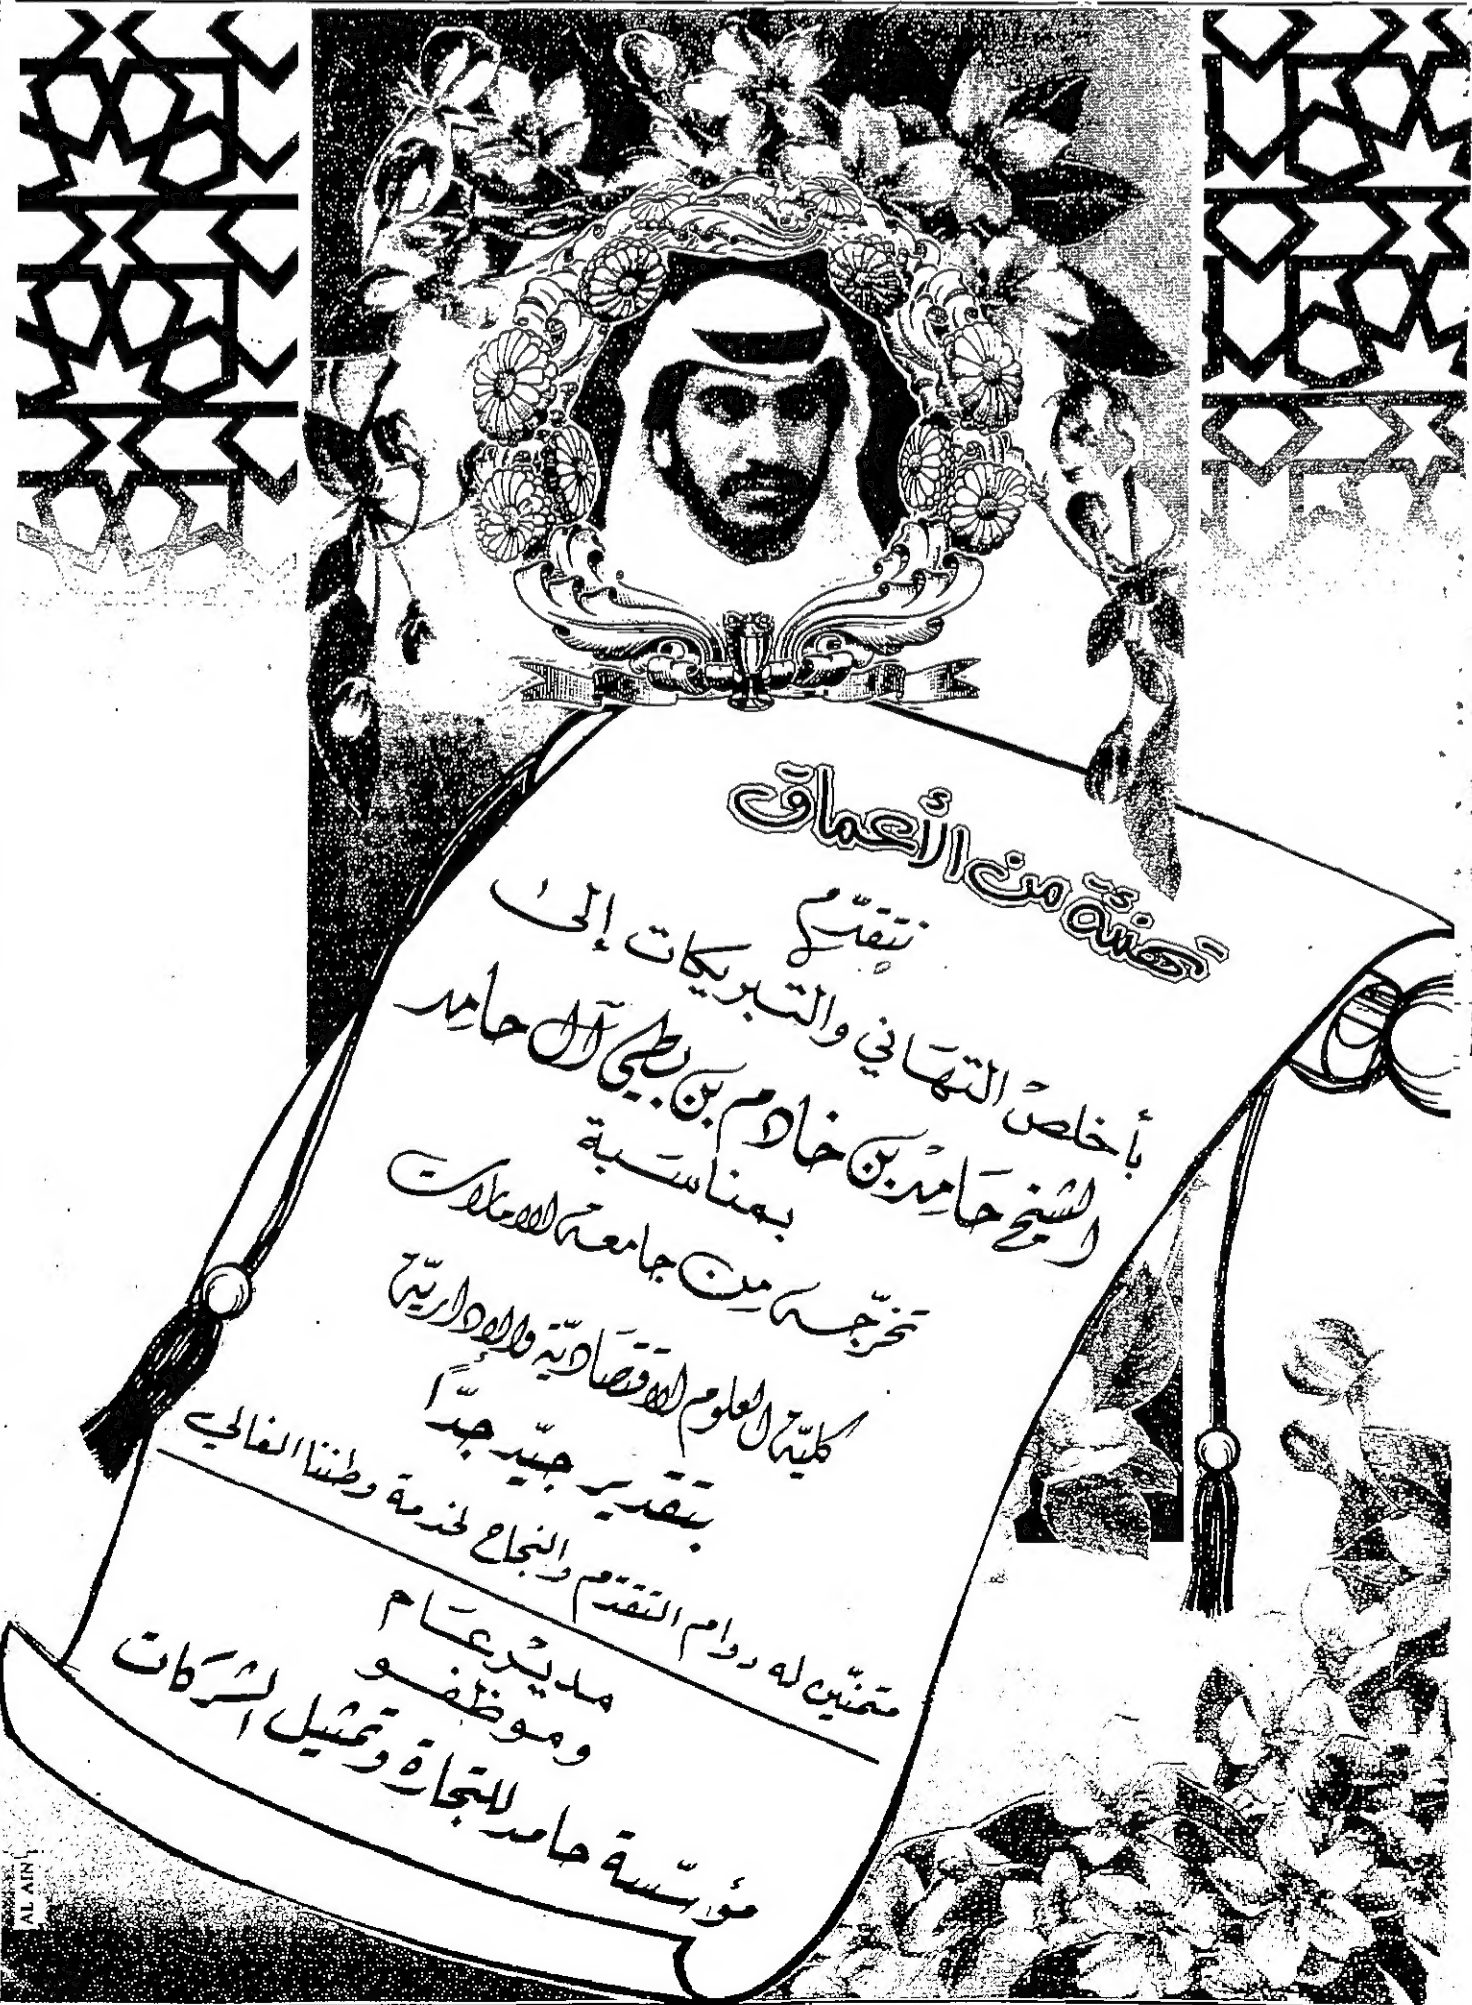 تهنئة من الأعماق
نتقدّم
بأخلصْ التهَاني والتبريكات إلى
الشيخ حَامِد بن خادم بن بطي آل حامِد
بمناسَبة
تخرّجه مِن جامعة الامارات
كليّة العلوم الاقتصَاديّة والإداريّة
بتقدير جيّد جدًا
متمنّين له دوام التقدّم والنجاح لخدمة وطننا الغالي
مديْر عَام
وموظفو
مؤسّسة حامد للتجارة وتمثيل الشركات
AL AIN